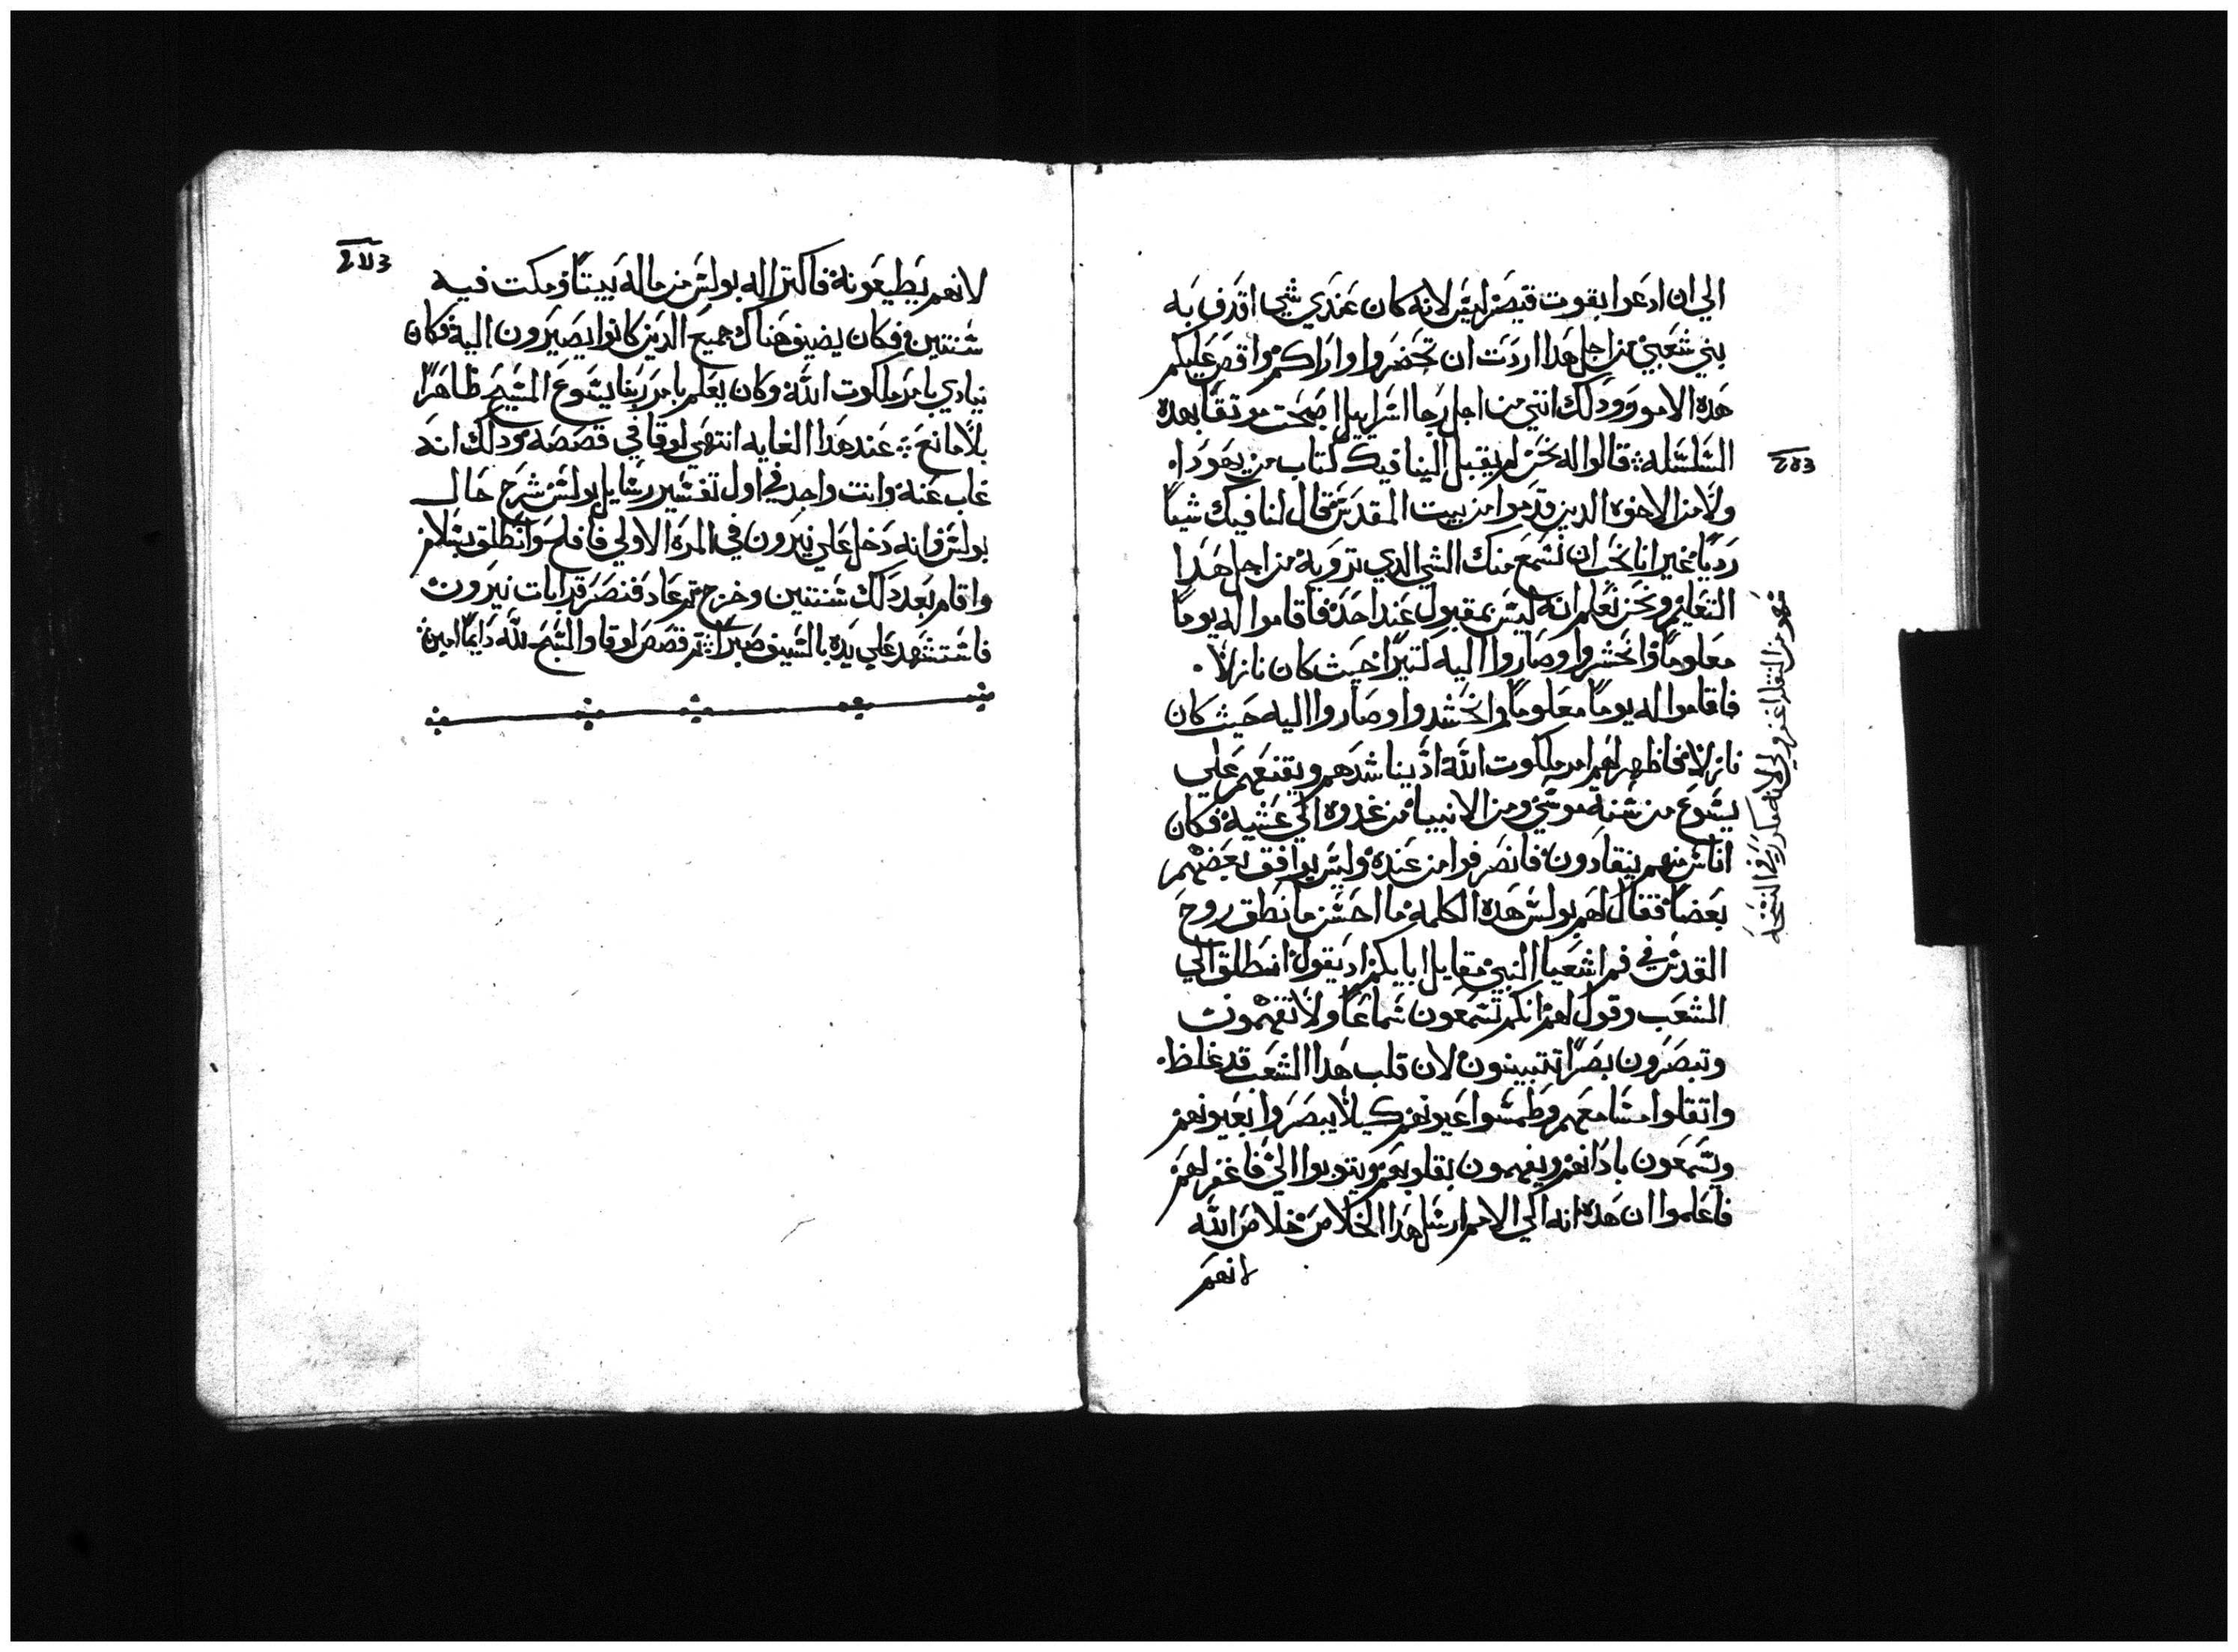 الي ان ادعوا بقوت قيصر ليس لانه كان عندي شي اقدف به
بني شعبي من اجل هدا اردت ان تحضروا واراكم واقص عليكم
هده الامور ودلك انني من اجل رجا اسراييل اصبحت موتقا بهده
السلسله قالوا له نحن لم يقبل الينا فيك كتاب من يهودا
ولا من الاخوه الدين قدموا من بيت المقدس قال لنا فيك شيا
رديا غير انا نحب ان نسمع منك الشي الدي ترويه من اجل هدا
التعليم ونحن نعلم انه ليس بمقبول عند احد فاقاموا له يوما
معلوما وانحشروا وصاروا اليه كتيرا حيث كان نازلا
فاقاموا له يوما معلوما وانحشدوا وصاروا اليه حيث كان
نازلا فاظهر لهم امر ملكوت الله اد يناشدهم ويقنعهم علي
يسوع من سنة موسي ومن الانبيا من غدوه الي عشيه فكان
اناس منهم ينقادون فانصرفوا من عنده وليس يوافق بعضهم
بعضا فقال لهم بولس هده الكلمه ما احسن ما نطق روح
القدس في فم اشعيا النبي مقابل ابايكم اد يقول انطلق الي
الشعب وقول لهم انكم تسمعون سماعا ولا تفهمون
وتبصرون بصرا تتبينون لان قلب هدا الشعب قد غلظ
واتقلوا مسامعهم وطمسوا عيونهم كيلا يبصروا بعيونهم
ويسمعون بادانهم ويفهمون بقلوبهم ويتوبوا الي فاغفر لهم
فاعلموا ان هده انه الي الامم ارسل هدا الخلاص خلاص الله
لانهم
لانهم يطيعونه فاكترا له بولس من ماله بيتا ومكت فيه
سنتين فكان يضيف هناك جميع الدين كانوا يصيرون اليه فكان
ينادي بامر ملكوت الله وكان يعلم بامر ربنا يسوع المسيح ظاهرا
بلا مانع عند هدا الغايه انتهي لوقا في قصصه ودلك انه
غاب عنه وانت واجد في اول تفسير رسايل بولس شرح حال
بولس فانه دخل علي نيرون في المره الاولي فافلح وانطلق بسلام
واقام بعد دلك سنتين وخرج تم عاد فنصر قرابات نيرون
فاستشهد علي يده بالسيف صبرا تم قصص لوقا والسبح لله دايما امين